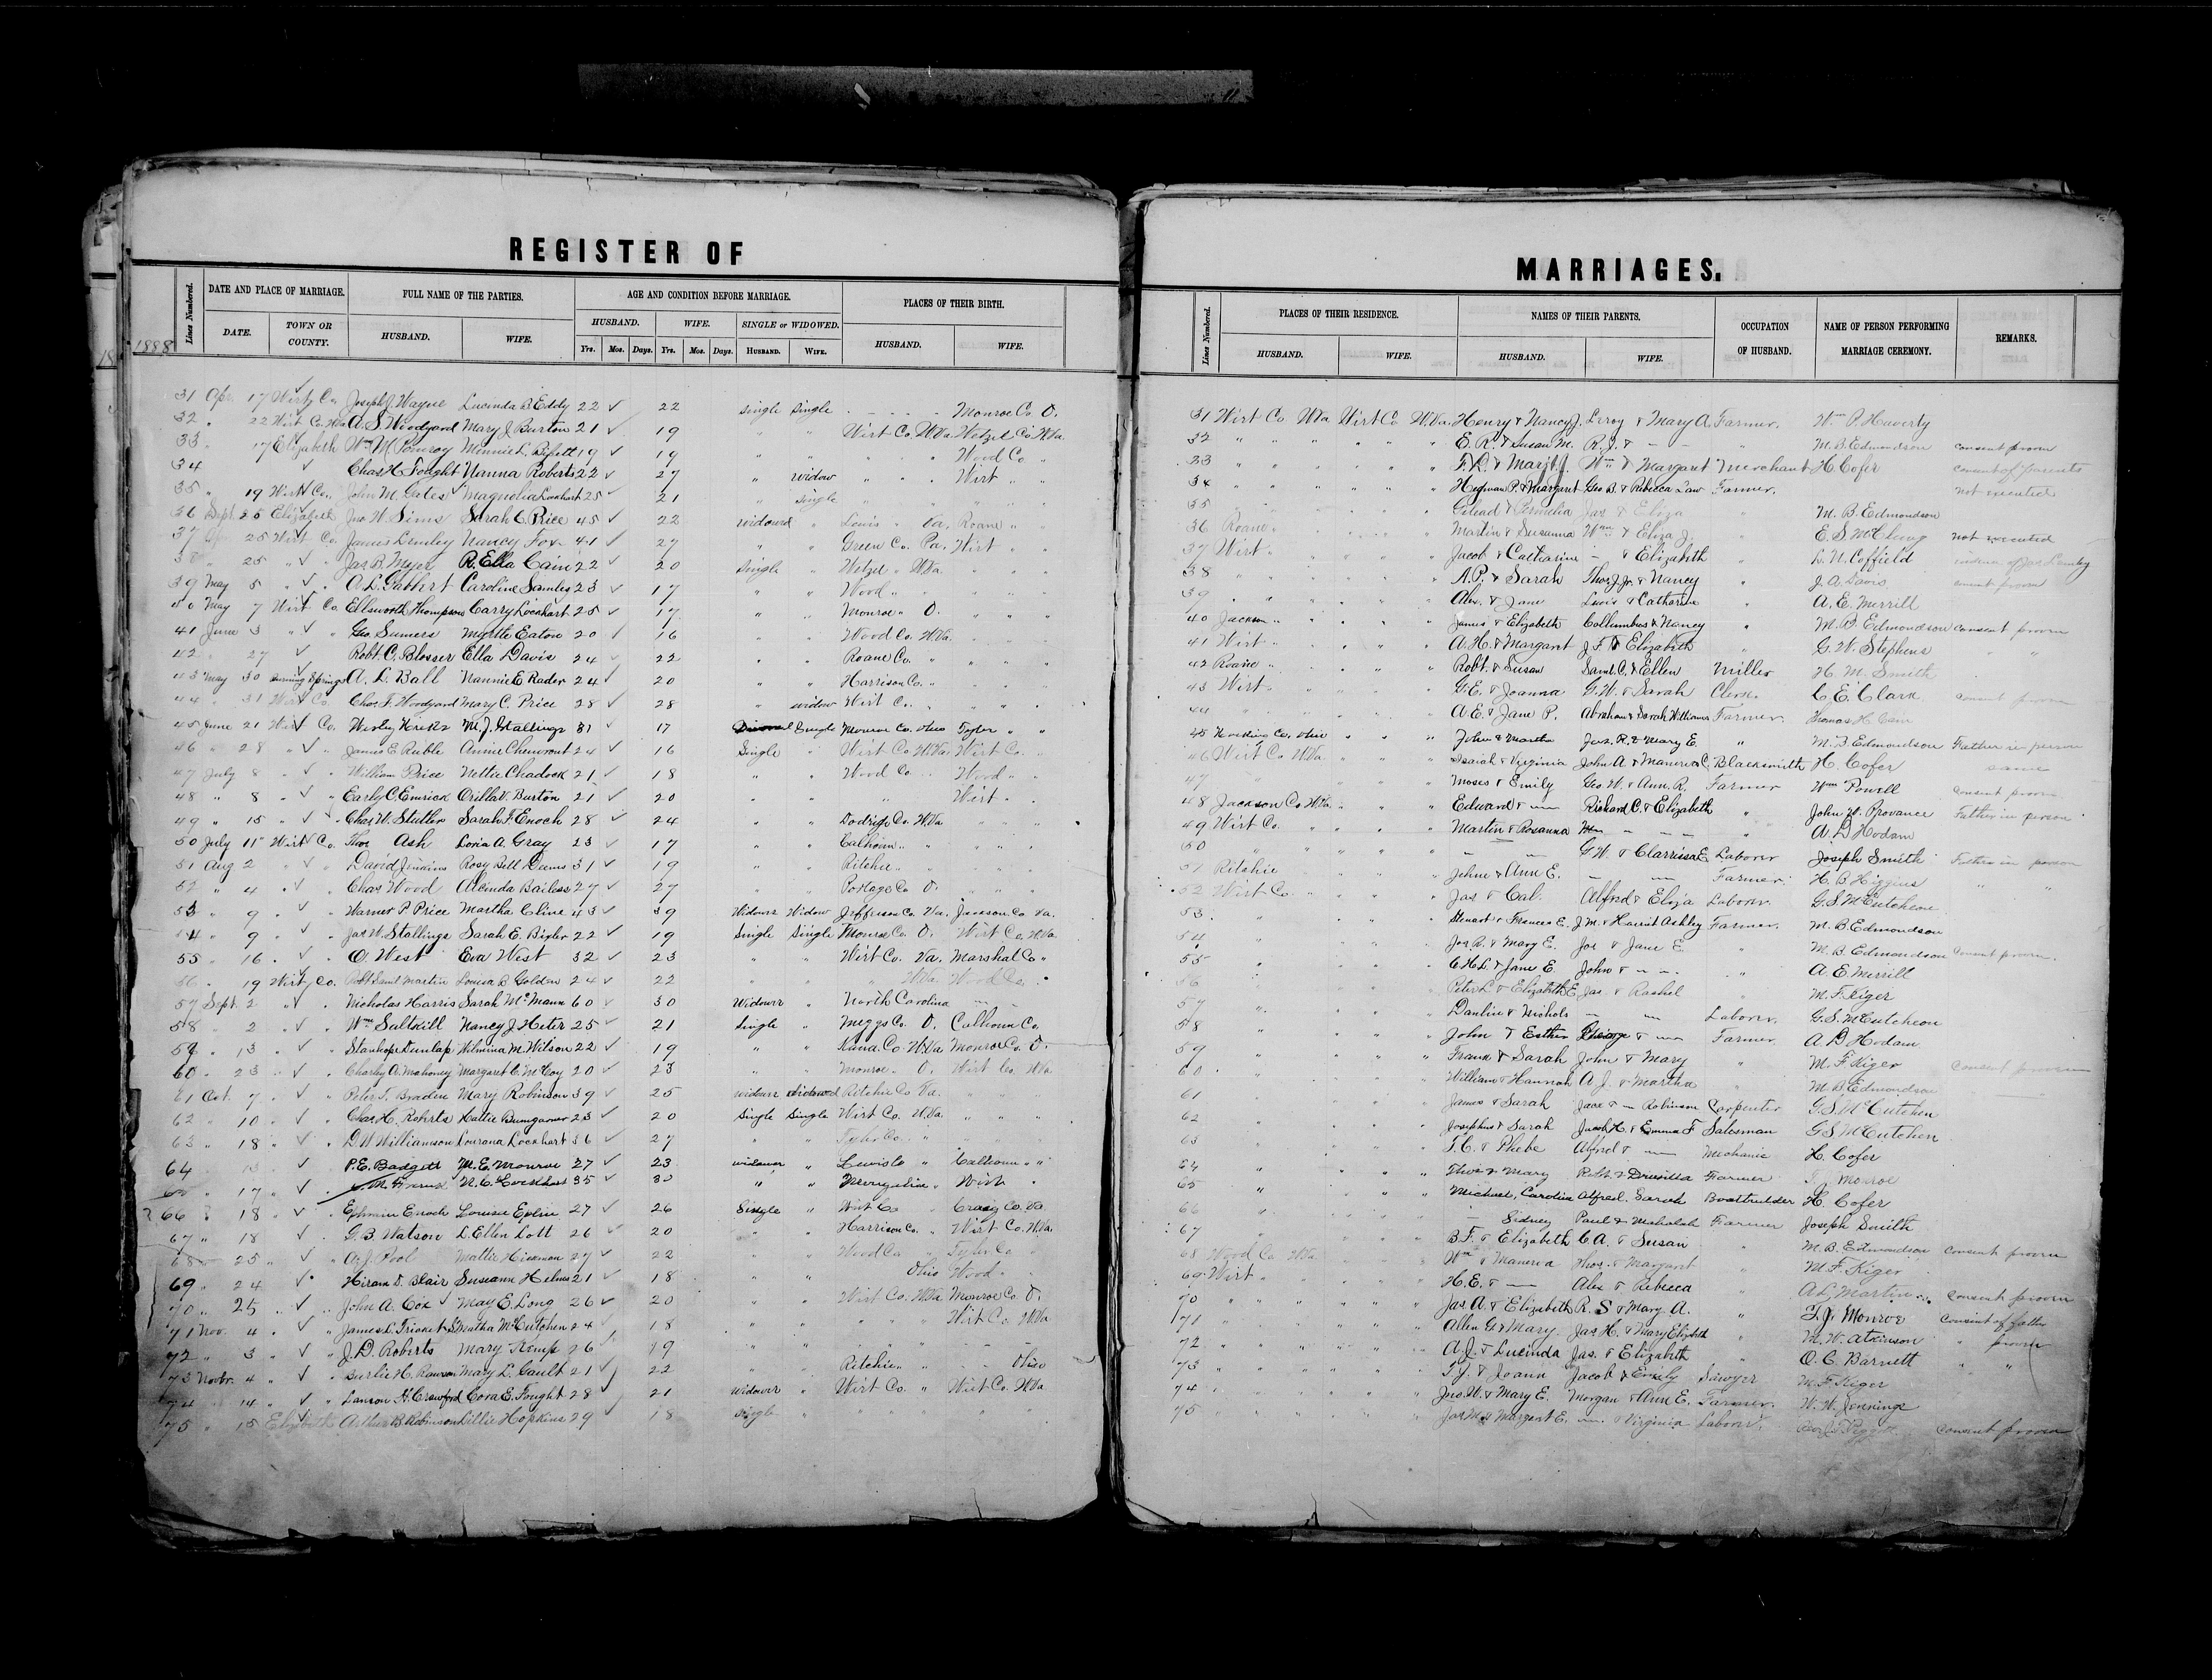 REGISTER OF
Lines Numbered. DATE AND PLACE OF MARRIAGE. FULL NAME OF THE PARTIES. AGE AND CONDITION BEFORE MARRIAGE. PLACES OF THEIR BIRTH.
DATE. TOWN OR COUNTY. HUSBAND. WIFE. HUSBAND. WIFE. SINGLE or WIDOWED. HUSBAND. WIFE.
Yrs. Mos. Days. Yrs. Mos. Days. HUSBAND. WIFE.
1888
31 Apr. 17 Wirt Co. Joseph J. Wayne Lucinda B. Eddy 22 ✓ 22 single single - - - - Monroe Co. O.
32 " 22 Wirt Co. W.Va A. S. Woodyard Mary J. Burton 21 ✓ 19 " " Wirt Co. W.Va. Wetzel Co. W.Va.
33 17 Elizabeth Wm. M. Pomroy Minnie L. 19 ✓ 19 " " " " Wood Co. "
34 ✓ Chas. H. Fought Nanna Roberts 22 ✓ 27 " widow " " Wirt " "
35 " 19 Wirt Co. John M. Gates Magnolia Lockhart 25 ✓ 21 " single
36 Sept. 25 Elizabeth Jno. W. Sims Sarah C. Price 45 ✓ 22 widowd " Louis " Va. Roane " "
37 25 Wirt Co. James Lemley Nancy Fox 41 ✓ 27 " " Green Co. Pa. Wirt " "
38 " 25 " ✓ " Jas. B. Meyer R. Ella Cain 22 ✓ 20 single " Wetzel " W.Va. " " "
39 May 5 " ✓ " A. L. Gabbert Caroline 23 ✓ 17 " " Wood " " " " "
40 May 7 Wirt Co. Ellsworth Thompson Carry Lockhart 25 ✓ 17 " " Monroe " O. " " "
41 June 3 " ✓ " Geo. Sumers Myrtle Eaton 20 ✓ 16 " " Wood Co. W.Va. " " "
42 " 27 ✓ Robt. C. Blosser Ella Davis 24 ✓ 22 " " Roane Co. " " " "
43 May 30 Burning Springs A. L. Ball Nannie E. Rader 24 ✓ 20 " " Harrison Co. " " " "
44 " 31 Wirt Co. Chas. F. Woodyard Mary C. Price 28 ✓ 28 " widow Wirt Co. " " " "
45 June 21 Wirt Co. Wesley M. J. Stallings 31 ✓ 17 Single Monroe Co. Ohio Tyler " "
46 " 28 " ✓ " James E. Ruble Annie Chevront 24 ✓ 16 Single " Wirt Co. W.Va. Wirt Co. "
47 July 8 " ✓ " William Price Nettie Chadock 21 ✓ 18 " " Wood Co. " Wood " "
48 " 8 " ✓ " Early C. Emrick Orilla V. Burton 21 ✓ 20 " " " Wirt " "
49 " 15 " ✓ " Chas. W. Stutler Sarah F. Enoch 28 ✓ 24 " " Dodrige Co. W.Va " " "
50 July 11" Wirt Co. Thos Ash Loria A. Gray 23 ✓ 17 " " Calhoun " " " "
51 Aug 2 " " David Jenkins Rosy Bell Deems 31 ✓ 19 " " Ritchie " " " "
52 " 4 " ✓ " Chas Wood Alcinda Bailess 27 ✓ 27 " " Portage Co O. " " "
53 " 9 " ✓ " Warner P. Price Martha Cline 43 ✓ 39 Widowr Widow Jefferson Co. Va. Jackson Co Va.
54 " 9 " ✓ " Jas. W. Stallings Sarah E. Bigler 22 ✓ 19 Single Single Monroe Co. O. Wirt Co. W.Va
55 " 16 " ✓ " O. West Eva West 32 ✓ 23 " " Wirt Co. Va. Marshal Co "
56 " 19 Wirt Co. Martin Louisa B. Golden 24 ✓ 22 " " " W.Va. Wood Co. "
57 Sept. 2 " ✓ " Nicholas Harris Sarah McMann 60 ✓ 30 Widowr " North Carolina - -
58 " 2 " ✓ " Wm. Saltkill Nancy J. Heter 25 ✓ 21 Single " Meggs Co. O. Calhoun Co.
59 " 13 " ✓ " Stanhope Dunlap Wilmina M. Wilson 22 ✓ 19 " " Kana. Co. W.Va Monroe Co. O.
60 " 23 " ✓ " Charley A. Mahoney Margaret C. McCoy 20 ✓ 23 " " Monroe " O. Wirt Co. W.Va
61 Oct. 7 " ✓ " Peter T. Braden Mary Robinson 39 ✓ 25 widowr widowed Ritchie Co Va. " " "
62 " 10 " ✓ " Chas. H. Roberts Hattie Bumgarner 23 ✓ 20 Single Single Wirt Co. W.Va. " " "
63 " 18 " ✓ " D. W. Williamson Lourana Lockhart 36 ✓ 27 " " Tyler Co. " " " "
64 13 ✓ P. E. Badgett M. E. Monroe 27 ✓ 23 widower " Lewis Co " Calhoun " "
65 " 17 " ✓ M. C. Lockhart 35 ✓ 30 " " Wirt "
66 18 " ✓ " Ephraim Enoch Louisa Eplin 27 ✓ 26 Single " Wirt Co " Craig Co. Va.
67 " 18 ✓ G. B. Watson L. Ellen Lott 26 ✓ 20 " " Harrison Co. " Wirt Co. W.Va.
68 25 ✓ A. J. Pool Mattie Hickman 27 ✓ 22 " " Wood Co " Tyler Co "
69 " 24 ✓ Hiram D. Blair Susiann Helms 21 ✓ 18 " " Ohio Wood "
70 " 25 " ✓ " John A. Cox May E. Long 26 ✓ 20 " " Wirt Co. W.Va Monroe Co. O.
71 Nov. 4 " ✓ " James L. Trickett Martha McCutchen 24 ✓ 18 " " " " " Wirt Co W.Va
72 " 3 " ✓ " J. D. Roberts Mary Kemp 26 ✓ 19 " " " " " - -
73 Novbr. 4 " ✓ " Burlie H. Rawson Mary L. Gault 21 ✓ 22 " " Ritchie " " - - Ohio
74 14 " ✓ Lawson H. Crawford Cora E. Fought 28 ✓ 21 widowr " Wirt Co. " Wirt Co. W.Va
75 " 15 Elizabeth Arthur B. Robinson Lillie Hopkins 29 ✓ 18 Single " " " " " "
MARRIAGES.
Lines Numbered. PLACES OF THEIR RESIDENCE. NAMES OF THEIR PARENTS. OCCUPATION OF HUSBAND. NAME OF PERSON PERFORMING MARRIAGE CEREMONY. REMARKS.
HUSBAND. WIFE. HUSBAND. WIFE.
31 Wirt Co W.Va Wirt Co W.Va. Henry & Nancy J. Leroy & Mary A. Farmer. Wm. P. Haverty
32 " " " " " " E. R. & Susan M. R. J. & - - " M. B. Edmondson consent proven
33 " " " " " " Wm. & Margaret Merchant H. Cofer consent of parents
34 " " " " " " P. & Margaret Geo B. & Rebecca Law Farmer. not executed
35 " " " " Gilead & Jas & Eliza " M. B. Edmondson
36 Roane " Martin & Susanna Wm. & Eliza J. " E. S. McClung not executed
37 Wirt " Jacob & Catharine - & Elizabeth " L. N. Coffield
38 " " " " " A. P. & Sarah Thos. J. Jr. & Nancy " J. A. Davis consent proven
39 " " " " " Alex. & Jane Lewis & Catharine " A. E. Merrill
40 Jackson " " " " James & Elizabeth Collumbus & Nancy " M. B. Edmondson consent proven
41 Wirt " " " " A. H. & Margaret J. F. & Elizabeth G. W. Stephens " "
42 Roane " " " " Robt. & Susan Saml. C. & Ellen Miller H. M. Smith
43 Wirt " " " " G. E. & Joanna G. W. & Sarah Clerk C. E. Clark consent proven
44 " " " " A. E. & Jane P. Abraham & Sarah Williams Farmer. Thomas H. Cain
45 Hocking Co. Ohio " " " John & Martha Jas. R. & Mary E. " M. B. Edmondson Father in person
46 Wirt Co W.Va. " " " Isaiah & Virginia John A & Manerva C. Blacksmith H. Cofer same
47 " " " " Moses & Emily Geo W. & Ann. R. Farmer Wm Powell consent proven
48 Jackson Co W.Va. " " " Edward & — Richard C. & Elizabeth " John W. Provance Father in person
49 Wirt Co. " " " Martin & Rosanna - - - " A. D. Hodam
50 " " " " " " - - G. W. & Clarrissa E. Laborer Joseph Smith Father in person
51 Ritchie " " " John & Ann E. - - Farmer. H. B. Higgins " "
52 Wirt Co. " " " " Jas & Cal. Alfred & Eliza Laborer. G. S. McCutcheon
53 " " " " Stewart & Frances E. J. M. & Harriet Ashley Farmer. M. B. Edmondson
54 " " " " Jas. R. & Mary E. Jos & Jane E. " M. B. Edmondson consent proven.
55 " " " " C. H. L. & Jane E. John & - - " A. E. Merrill
56 " " " " Peter L. & Elizabeth E. Jas. & Rachel " M. F. Kiger
57 " " " " & Nichols - - Laborer. G. S. McCutcheon
58 " " " " John & Esther George & - Farmer A. D. Hodam
59 " " " " Frank & Sarah John & Mary " M. F. Kiger consent proven
60 " " " " William & Hannah A. J. & Martha " M. B. Edmondson
61 " " " James & Sarah & — Robinson Carpenter G. S. McCutchen
62 " " " Josephus & Sarah Jacob H. & Emma F. Salesman G. S. McCutchen
63 " " " T. C. & Phebe Alfred & — Mechanic H. Cofer
64 " " " Thos. & Mary Robt. & Drusilla Farmer Monroe
65 " " " Michael, Caroline Alfred, Sarah Boatbuilder H. Cofer
66 " " " - Sidney Paul & Mahalah Farmer Joseph Smith
67 " " " B. F. & Elizabeth C. A. & Susan " M. B. Edmondson consent proven
68 Wood Co W.Va. " " " Wm. & Manerva Thos. & Margaret " M. F. Kiger
69 Wirt " " " " H. E. & — Alex & Rebecca " A. L. Martin consent proven
70 " " " " " " Jas. A. & Elizabeth R. S & Mary A. " T. J. Monroe consent of father
71 " " " " " " Allen G. & Mary. Jas. H. & Mary Elizabeth " M. W. Atkinson " proven
72 " " " " " " A. J. & Lucinda Jas. & Elizabeth " O. C. Barnett " "
73 " " " " " " T. J. & Joann Jacob & Emily Sawyer M. F. Kiger
74 " " " " " Jno. W. & Mary E. Morgan & Ann E. Farmer. W. W. Jennings
75 " " " " " " Jas M. & Margaret E. — & Virginia Laborer. consent proven